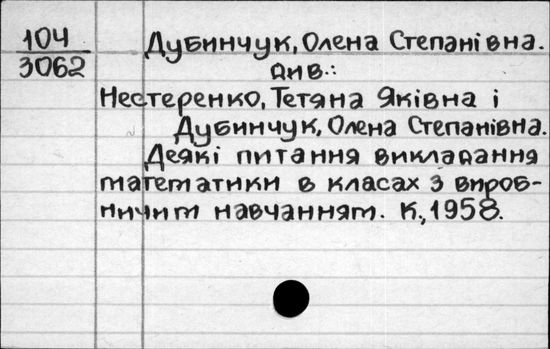 104
3062
Дубинчук, Олена Степанівна.
див.:
Нестеренко, Тетяна Яківна і
Дубинчук, Олена Степанівна.
Деякі питання викладання
математики в класах з вироб-
ничим навчанням. К., 1958.